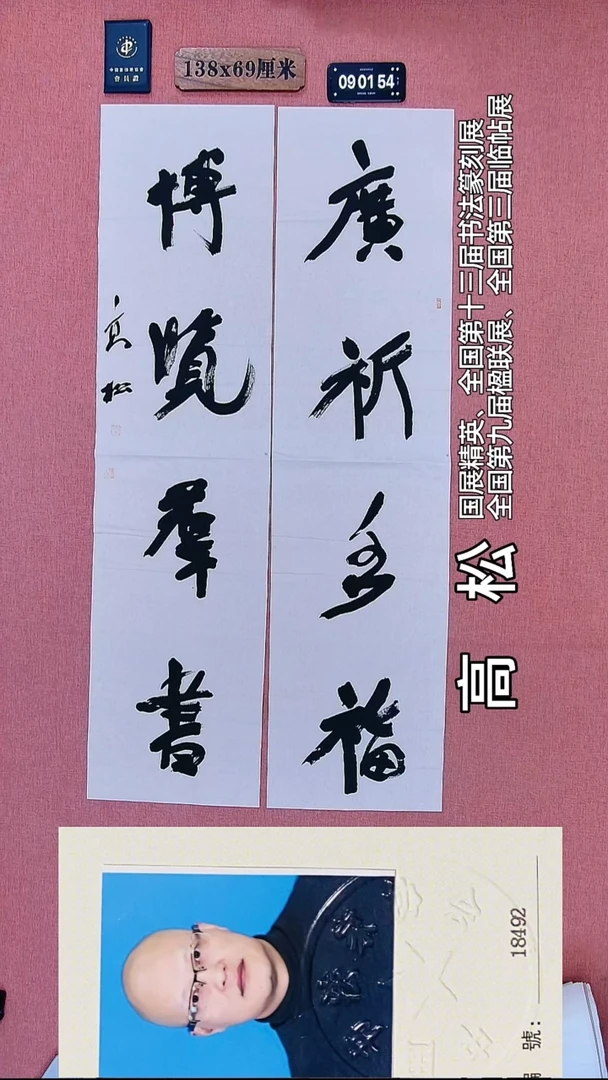 中国书法家协会
會員證
138x69厘米
09 01 54
廣祈多福
博覽羣書
高松
国展精英、全国第十三届书法篆刻展
全国第九届楹联展、全国第三届临帖展
高 松
號: 18492